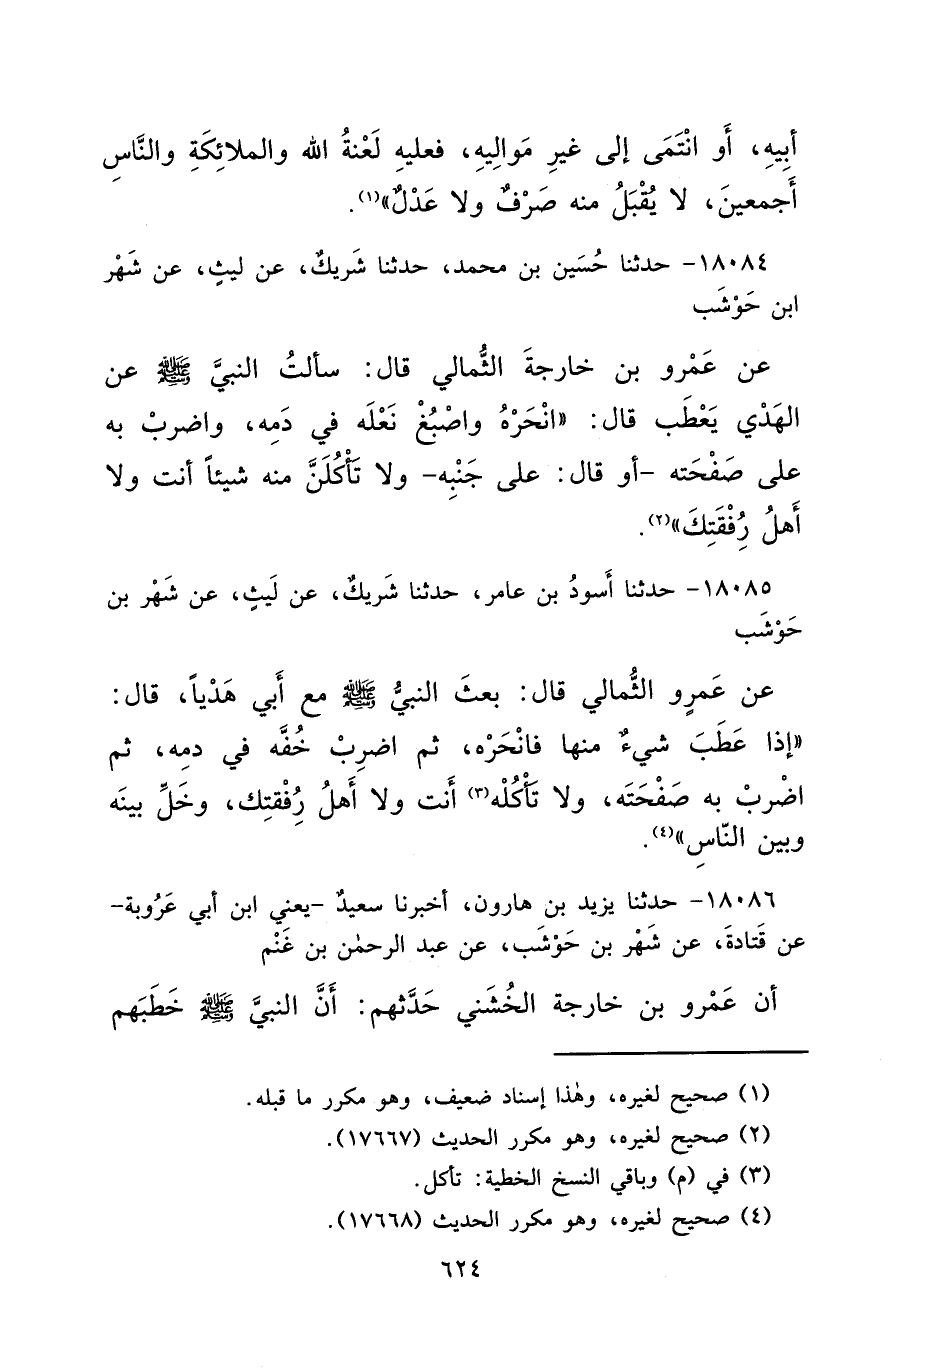 أَبِيهِ، أَو انْتَمَى إلى غيرِ مَوالِيهِ، فعليهِ لَعْنةُ الله والملائِكَةِ والنَّاسِ
أَجمعينَ، لا يُقْبَلُ منه صَرْفٌ ولا عَدْلٌ»(١).
١٨٠٨٤- حدثنا حُسَين بن محمد، حدثنا شَريكٌ، عن ليثٍ، عن شَهْر
ابن حَوْشَب
عن عَمْرو بن خارجةَ الثُّمالي قال: سألتُ النبيَّ ﷺ عن
الهَدْي يَعْطَب قال: «انْحَرْهُ واصْبُغْ نَعْلَه في دَمِه، واضربْ به
على صَفْحَته -أو قال: على جَنْبِه- ولا تَأْكُلَنَّ منه شيئاً أنت ولا
أَهلُ رِفْقَتِكَ»(٢).
١٨٠٨٥- حدثنا أَسودُ بن عامر، حدثنا شَريكٌ، عن لَيثٍ، عن شَهْر بن
حَوْشَب
عن عَمرٍو الثُّمالي قال: بعثَ النبيُّ ﷺ مع أَبي هَدْياً، قال:
«إذا عَطَبَ شيءٌ منها فانْحَرْه، ثم اضرِبْ خُفَّه في دمِه، ثم
اضْربْ به صَفْحَتَه، ولا تَأْكُلْه(٣) أَنت ولا أَهلُ رِفْقتِك، وخَلِّ بينَه
وبين النّاسِ»(٤).
١٨٠٨٦- حدثنا يزيد بن هارون، أخبرنا سعيدٌ -يعني ابن أبي عَرُوبة-
عن قَتادةَ، عن شَهْر بن حَوْشَب، عن عبد الرحمٰن بن غَنْم
أن عَمْرو بن خارجة الخُشَني حَدَّثهم: أَنَّ النبيَّ ﷺ خَطَبَهم
(١) صحيح لغيره، وهٰذا إسناد ضعيف، وهو مكرر ما قبله.
(٢) صحيح لغيره، وهو مكرر الحديث (١٧٦٦٧).
(٣) في (م) وباقي النسخ الخطية: تأكل.
(٤) صحيح لغيره، وهو مكرر الحديث (١٧٦٦٨).
٦٢٤